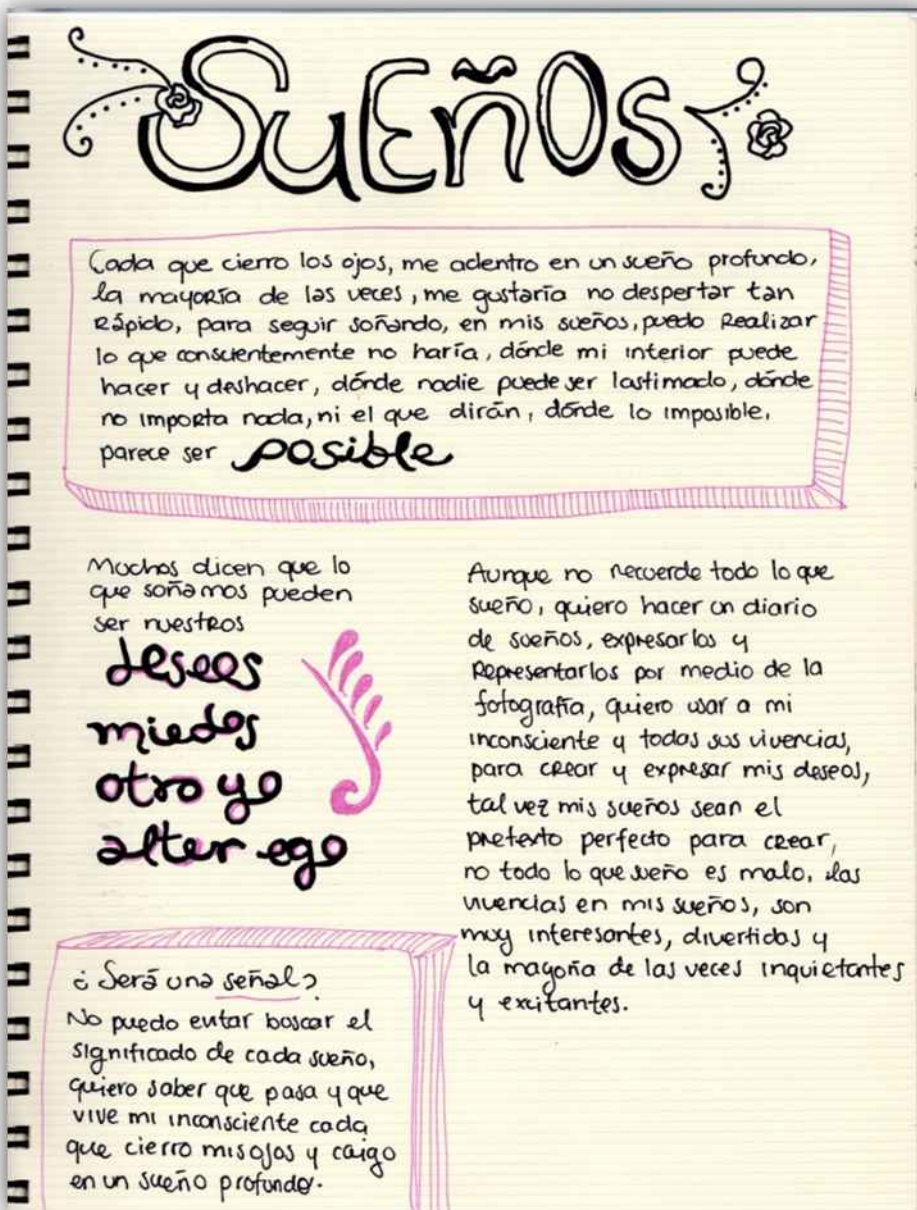 SuEñOs
Cada que cierro los ojos, me adentro en un sueño profundo,
la mayoría de las veces, me gustaría no despertar tan
Rápido, para seguir soñando, en mis sueños, puedo Realizar
lo que conscientemente no haría, dónde mi interior puede
hacer y deshacer, dónde nadie puede ser lastimado, dónde
no importa nada, ni el que dirán, dónde lo imposible,
parece ser posible
Muchos dicen que lo
que soñamos pueden
ser nuestros
deseos
miedos
otro yo
alter ego
¿Será una señal?
No puedo evitar buscar el
significado de cada sueño,
quiero saber que pasa y que
vive mi inconsciente cada
que cierro mis ojos y caigo
en un sueño profundo.
Aunque no recuerde todo lo que
sueño, quiero hacer un diario
de sueños, expresarlos y
Representarlos por medio de la
fotografía, quiero usar a mi
inconsciente y todas sus vivencias,
para crear y expresar mis deseos,
tal vez mis sueños sean el
pretexto perfecto para crear,
no todo lo que sueño es malo, las
vivencias en mis sueños, son
muy interesantes, divertidas y
la mayoría de las veces inquietantes
y excitantes.